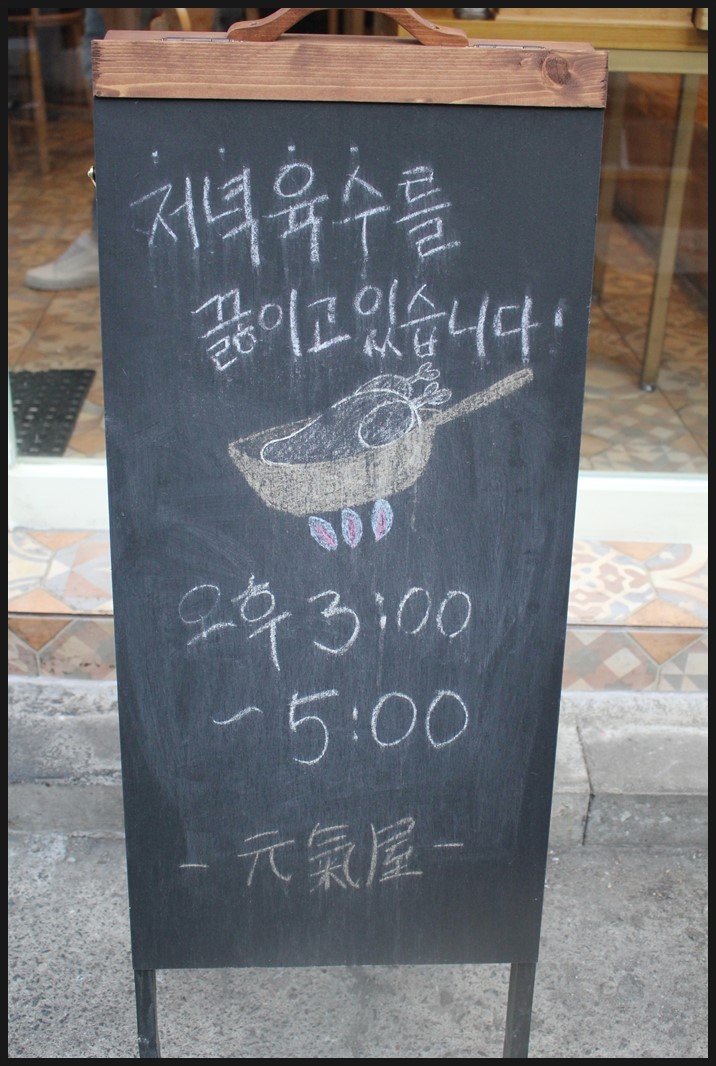 저녁육수를
끓이고있습니다!
오후 3:00
~5:00
- 元氣屋 -